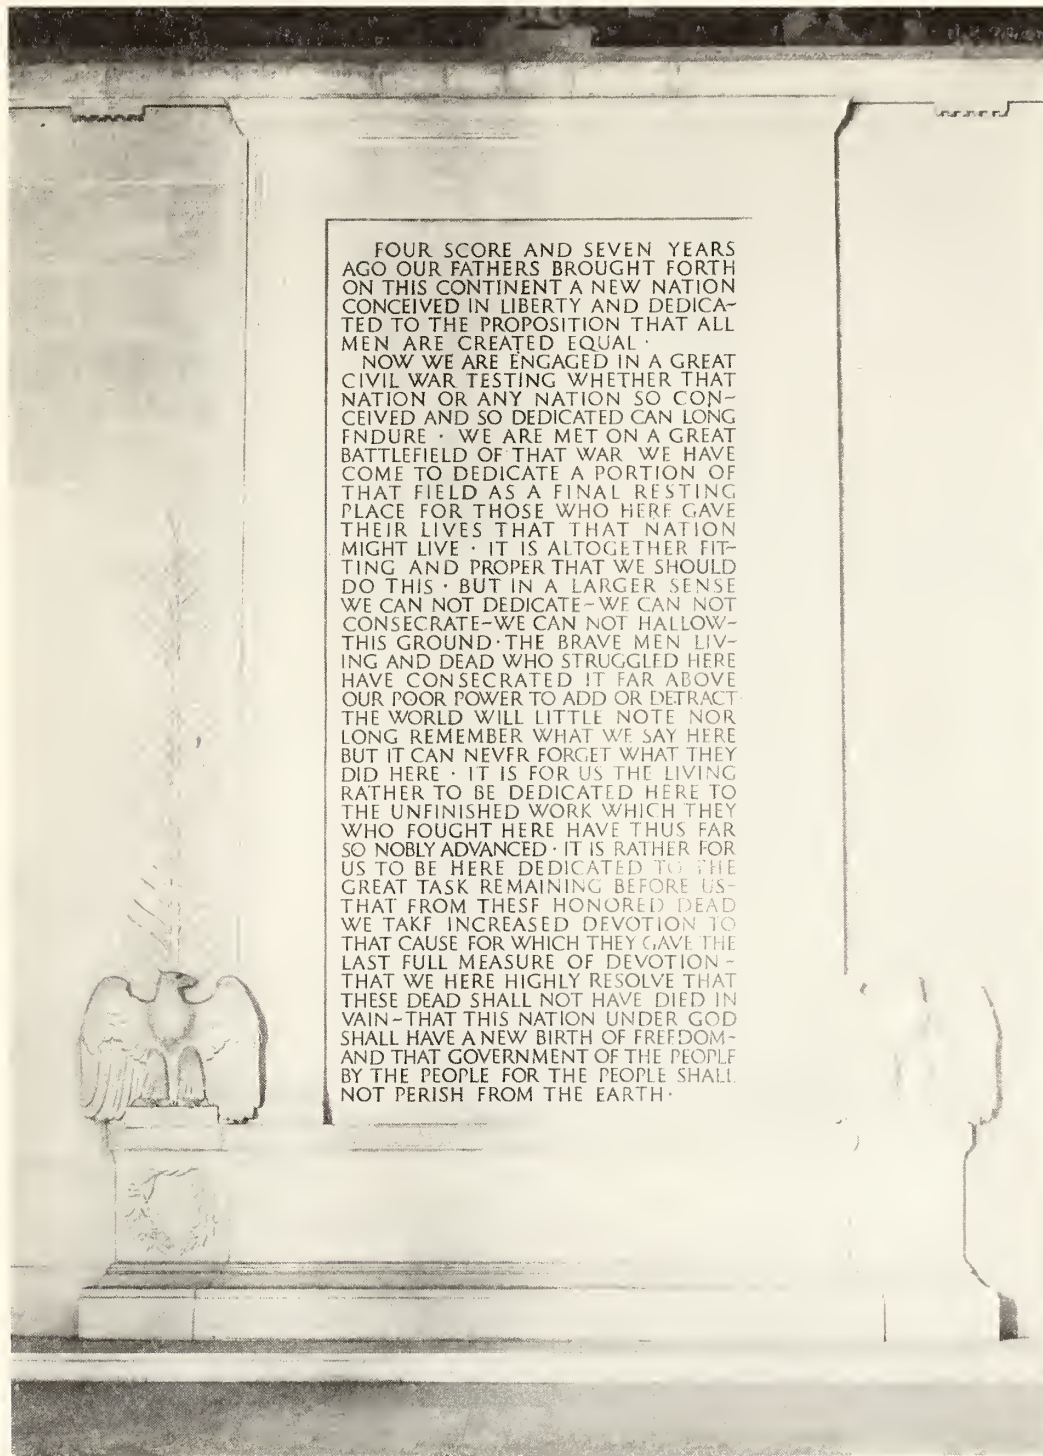 FOUR SCORE AND SEVEN YEARS
AGO OUR FATHERS BROUGHT FORTH
ON THIS CONTINENT A NEW NATION
CONCEIVED IN LIBERTY AND DEDICA~
TED TO THE PROPOSITION THAT ALL
MEN ARE CREATED EQUAL ·
NOW WE ARE ENGAGED IN A GREAT
CIVIL WAR TESTING WHETHER THAT
NATION OR ANY NATION SO CON~
CEIVED AND SO DEDICATED CAN LONG
ENDURE · WE ARE MET ON A GREAT
BATTLEFIELD OF THAT WAR WE HAVE
COME TO DEDICATE A PORTION OF
THAT FIELD AS A FINAL RESTING
PLACE FOR THOSE WHO HERE GAVE
THEIR LIVES THAT THAT NATION
MIGHT LIVE · IT IS ALTOGETHER FIT~
TING AND PROPER THAT WE SHOULD
DO THIS · BUT IN A LARGER SENSE
WE CAN NOT DEDICATE~WE CAN NOT
CONSECRATE~WE CAN NOT HALLOW~
THIS GROUND · THE BRAVE MEN LIV~
ING AND DEAD WHO STRUGGLED HERE
HAVE CONSECRATED IT FAR ABOVE
OUR POOR POWER TO ADD OR DETRACT·
THE WORLD WILL LITTLE NOTE NOR
LONG REMEMBER WHAT WE SAY HERE
BUT IT CAN NEVER FORGET WHAT THEY
DID HERE · IT IS FOR US THE LIVING
RATHER TO BE DEDICATED HERE TO
THE UNFINISHED WORK WHICH THEY
WHO FOUGHT HERE HAVE THUS FAR
SO NOBLY ADVANCED · IT IS RATHER FOR
US TO BE HERE DEDICATED TO THE
GREAT TASK REMAINING BEFORE US~
THAT FROM THESE HONORED DEAD
WE TAKE INCREASED DEVOTION TO
THAT CAUSE FOR WHICH THEY GAVE THE
LAST FULL MEASURE OF DEVOTION ~
THAT WE HERE HIGHLY RESOLVE THAT
THESE DEAD SHALL NOT HAVE DIED IN
VAIN~THAT THIS NATION UNDER GOD
SHALL HAVE A NEW BIRTH OF FREEDOM~
AND THAT GOVERNMENT OF THE PEOPLE
BY THE PEOPLE FOR THE PEOPLE SHALL
NOT PERISH FROM THE EARTH ·